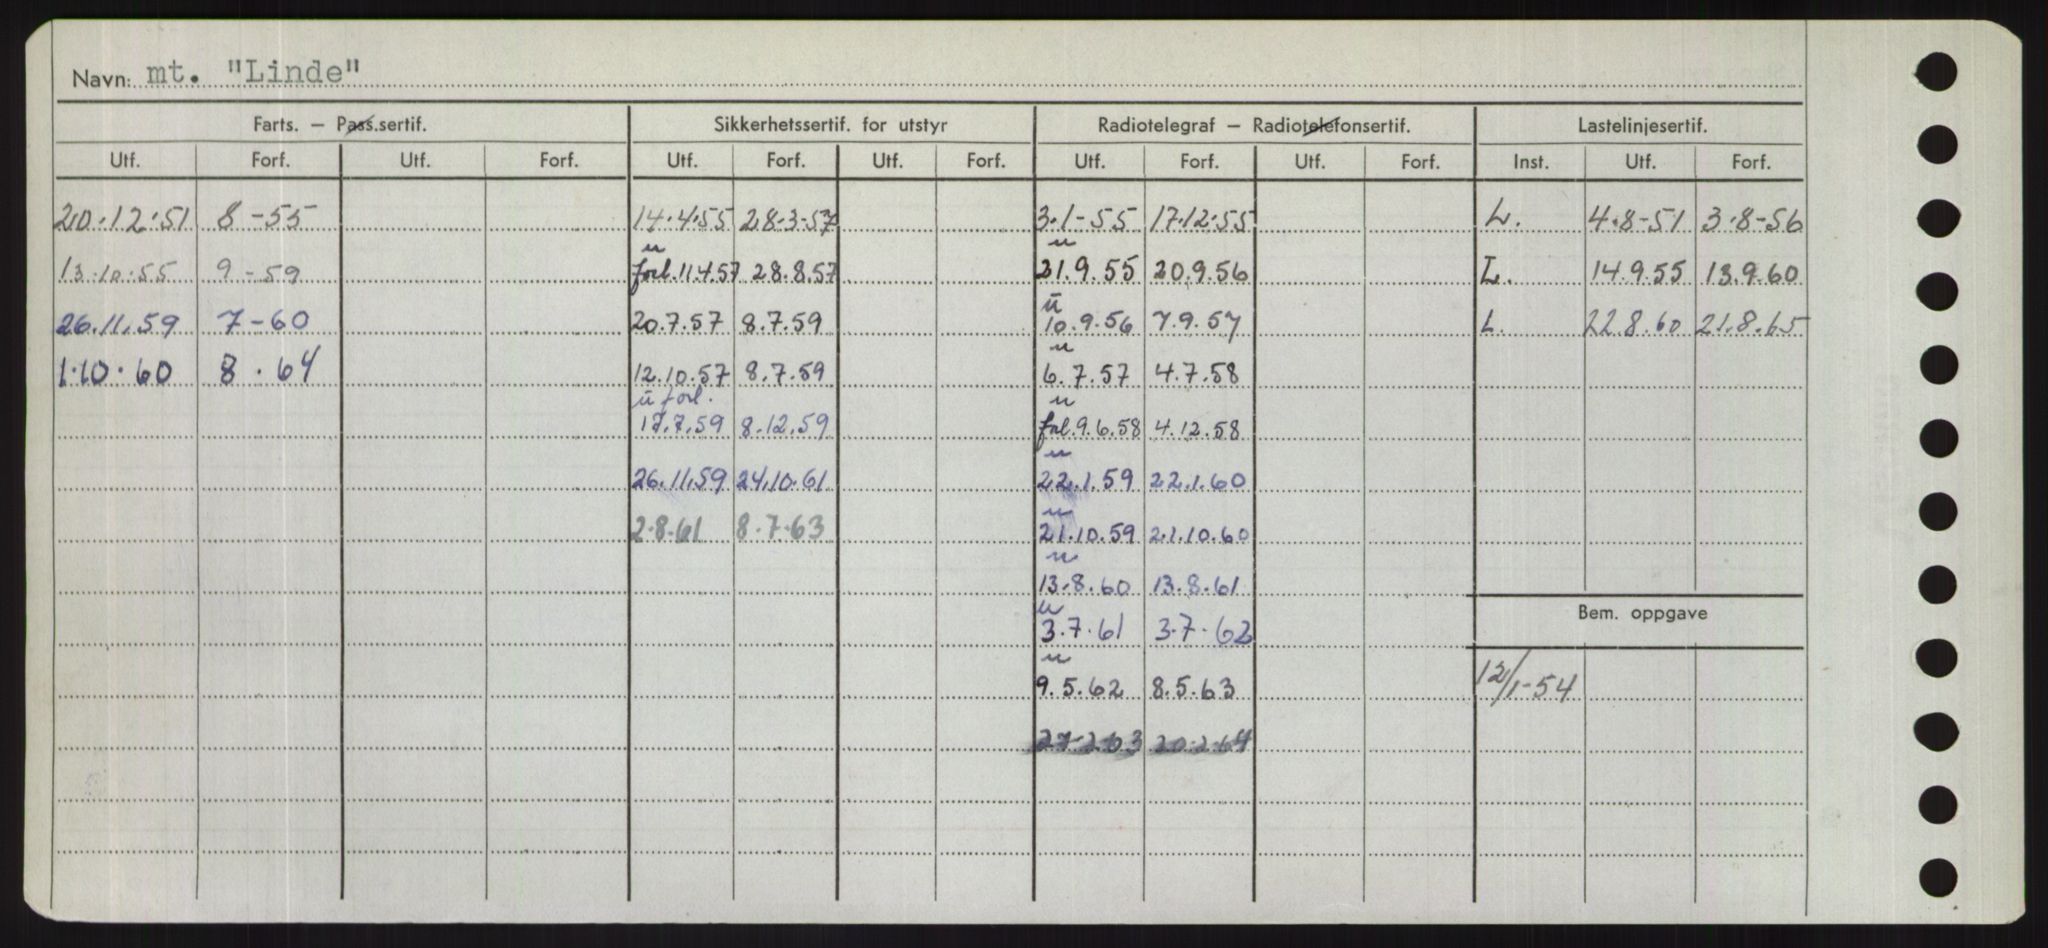 Navn: mt. "Linde"
Farts. — Pass.sertif. Sikkerhetssertif. for utstyr Radiotelegraf — Radiotelefonsertif. Lastelinjesertif.
Utf. Forf. Utf. Forf. Utf. Forf. Utf. Forf. Utf. Forf. Utf. Forf. Inst. Utf. Forf.
20.12.51 8-55 14.4.55 28.3-57 3.1-55 17.12.55 L. 4.8-51 3.8-56
u u
13.10.55 9-59 forl.11.4.57 28.8.57 21.9.55 20.9.56 L. 14.9.55 13.9.60
u
26.11.59 7-60 20.7.57 8.7.59 10.9.56 7.9.57 L. 22.8.60 21.8.65
u
1.10.60 8.64 12.10.57 8.7.59 6.7.57 4.7.58
u forl. u
17.7.59 8.12.59 forl.9.6.58 4.12.58
u
26.11.59 24.10.61 22.1.59 22.1.60
u
2.8.61 8.7.63 21.10.59 21.10.60
u
13.8.60 13.8.61
u Bem. oppgave
3.7.61 3.7.62
u
9.5.62 8.5.63 12/1-54
20.2.64